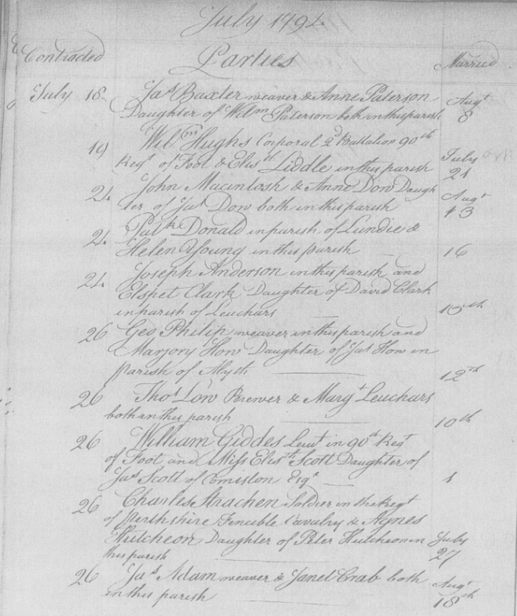 July 1794
Contracted Parties Married
July 18 Jas Baxter weaver & Anne Paterson Augt
Daughter of Wilm Paterson both in this parish 8
19 Wilm Hughs Corporal 2d Battalion 90th
Regt of Foot & Elisth Liddle in this parish July 21
21 John Macintosh & Anne Dow Daugh
ter of Jas Dow both in this parish Augt 13
21 Patk Donald in parish of Lundie &
Helen Young in this parish 16
21 Joseph Anderson in this parish and
Elspet Clark Daughter of David Clark
in parish of Leuchars
26 Geo Philip weaver in this parish and
Marjory How Daughter of Jas How in
Parish of Alyth 12th
26 Thos Low Brewer & Margt Leuchars
both in this parish 10th
26 William Giddes Lieut in 90th Regt
of Foot and Miss Elisth Scott Daughter of
Jas Scott of Comiston Esqr 1
26 Charles Strachen Soldier in the Regt
of Perthshire Fencible Cavalry & Agnes
Hutcheon Daughter of Peter Hutcheon in July
this parish 27
26 Jas Adam weaver & Janet Crab both Augt
in this parish 18th